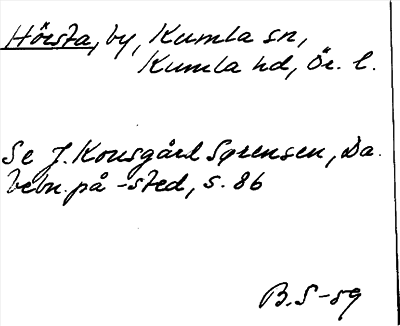 Hörsta, by, Kumla sn,
Kumla hd, Ör. l.
Se J. Kousgård Sørensen, Da.
bebn. på -sted, s. 86
B.S-59